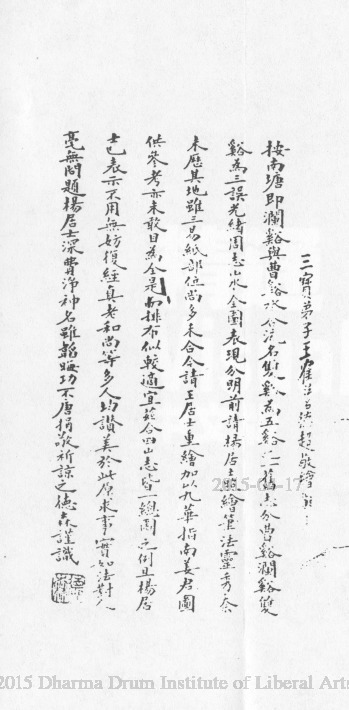 三寶弟子王
敬繪
按南塘即瀾谿與曹谿水合流名雙谿為五谿之一舊志分曹谿瀾谿雙
谿為三誤光緒周志山水全圖表現分明前請楊居士照繪筆法靈秀奈
未歷其地雖三易紙部位尚多未合今請王居士重繪加以九華指南姜君圖
供參考亦未敢目為全是而排布似較適宜於合四山志皆一總圖之例且楊居
士已表示不用無妨復經真老和尚等多人均讚美於此原求事實如法對人
毫無問題楊居士深費淨神名雖韜晦功不唐捐敬祈諒之德森謹識
2015-04-17
2015 Dharma Drum Institute of Liberal Arts